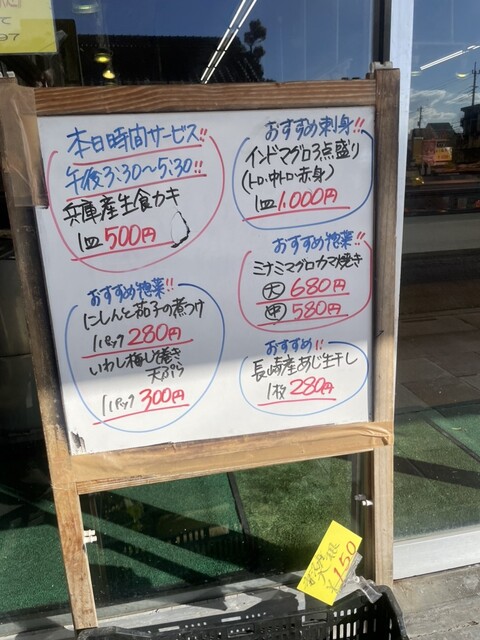 本日時間サービス!!
午後3:30〜5:30!!
兵庫産生食カキ
1皿 500円
おすすめ刺身!!
インドマグロ3点盛り
(トロ・中トロ・赤身)
1皿 1,000円
おすすめ惣菜!!
ミナミマグロカマ焼き
大 680円
中 580円
おすすめ惣菜!!
にしんと茄子の煮つけ
1パック 280円
いわし梅しそ巻き
天ぷら
1パック 300円
おすすめ!!
長崎産あじ生干し
1枚 280円
¥150